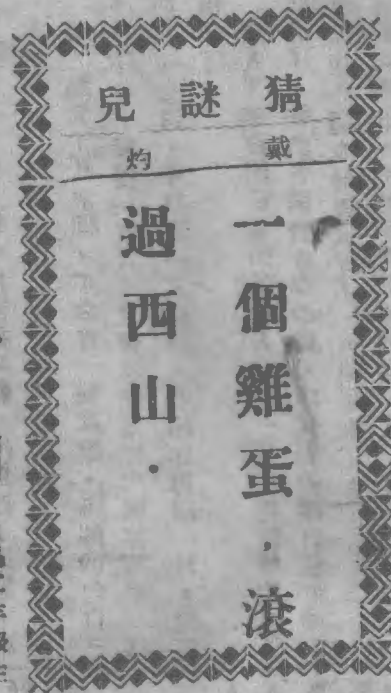 猜謎兒
戴灼
一個雞蛋．滾
過西山．